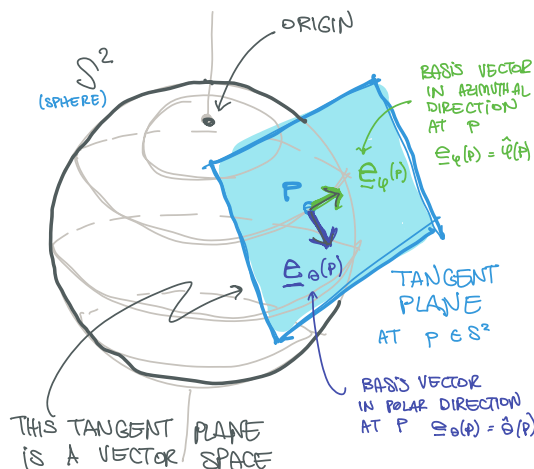 ORIGIN
S²
(SPHERE)
BASIS VECTOR
IN AZIMUTHAL
DIRECTION
AT P
e_φ(P) = φ̂(P)
P
e_φ(P)
e_θ(P)
TANGENT
PLANE
AT P ∈ S²
BASIS VECTOR
IN POLAR DIRECTION
AT P e_θ(P) = θ̂(P)
THIS TANGENT PLANE
IS A VECTOR SPACE